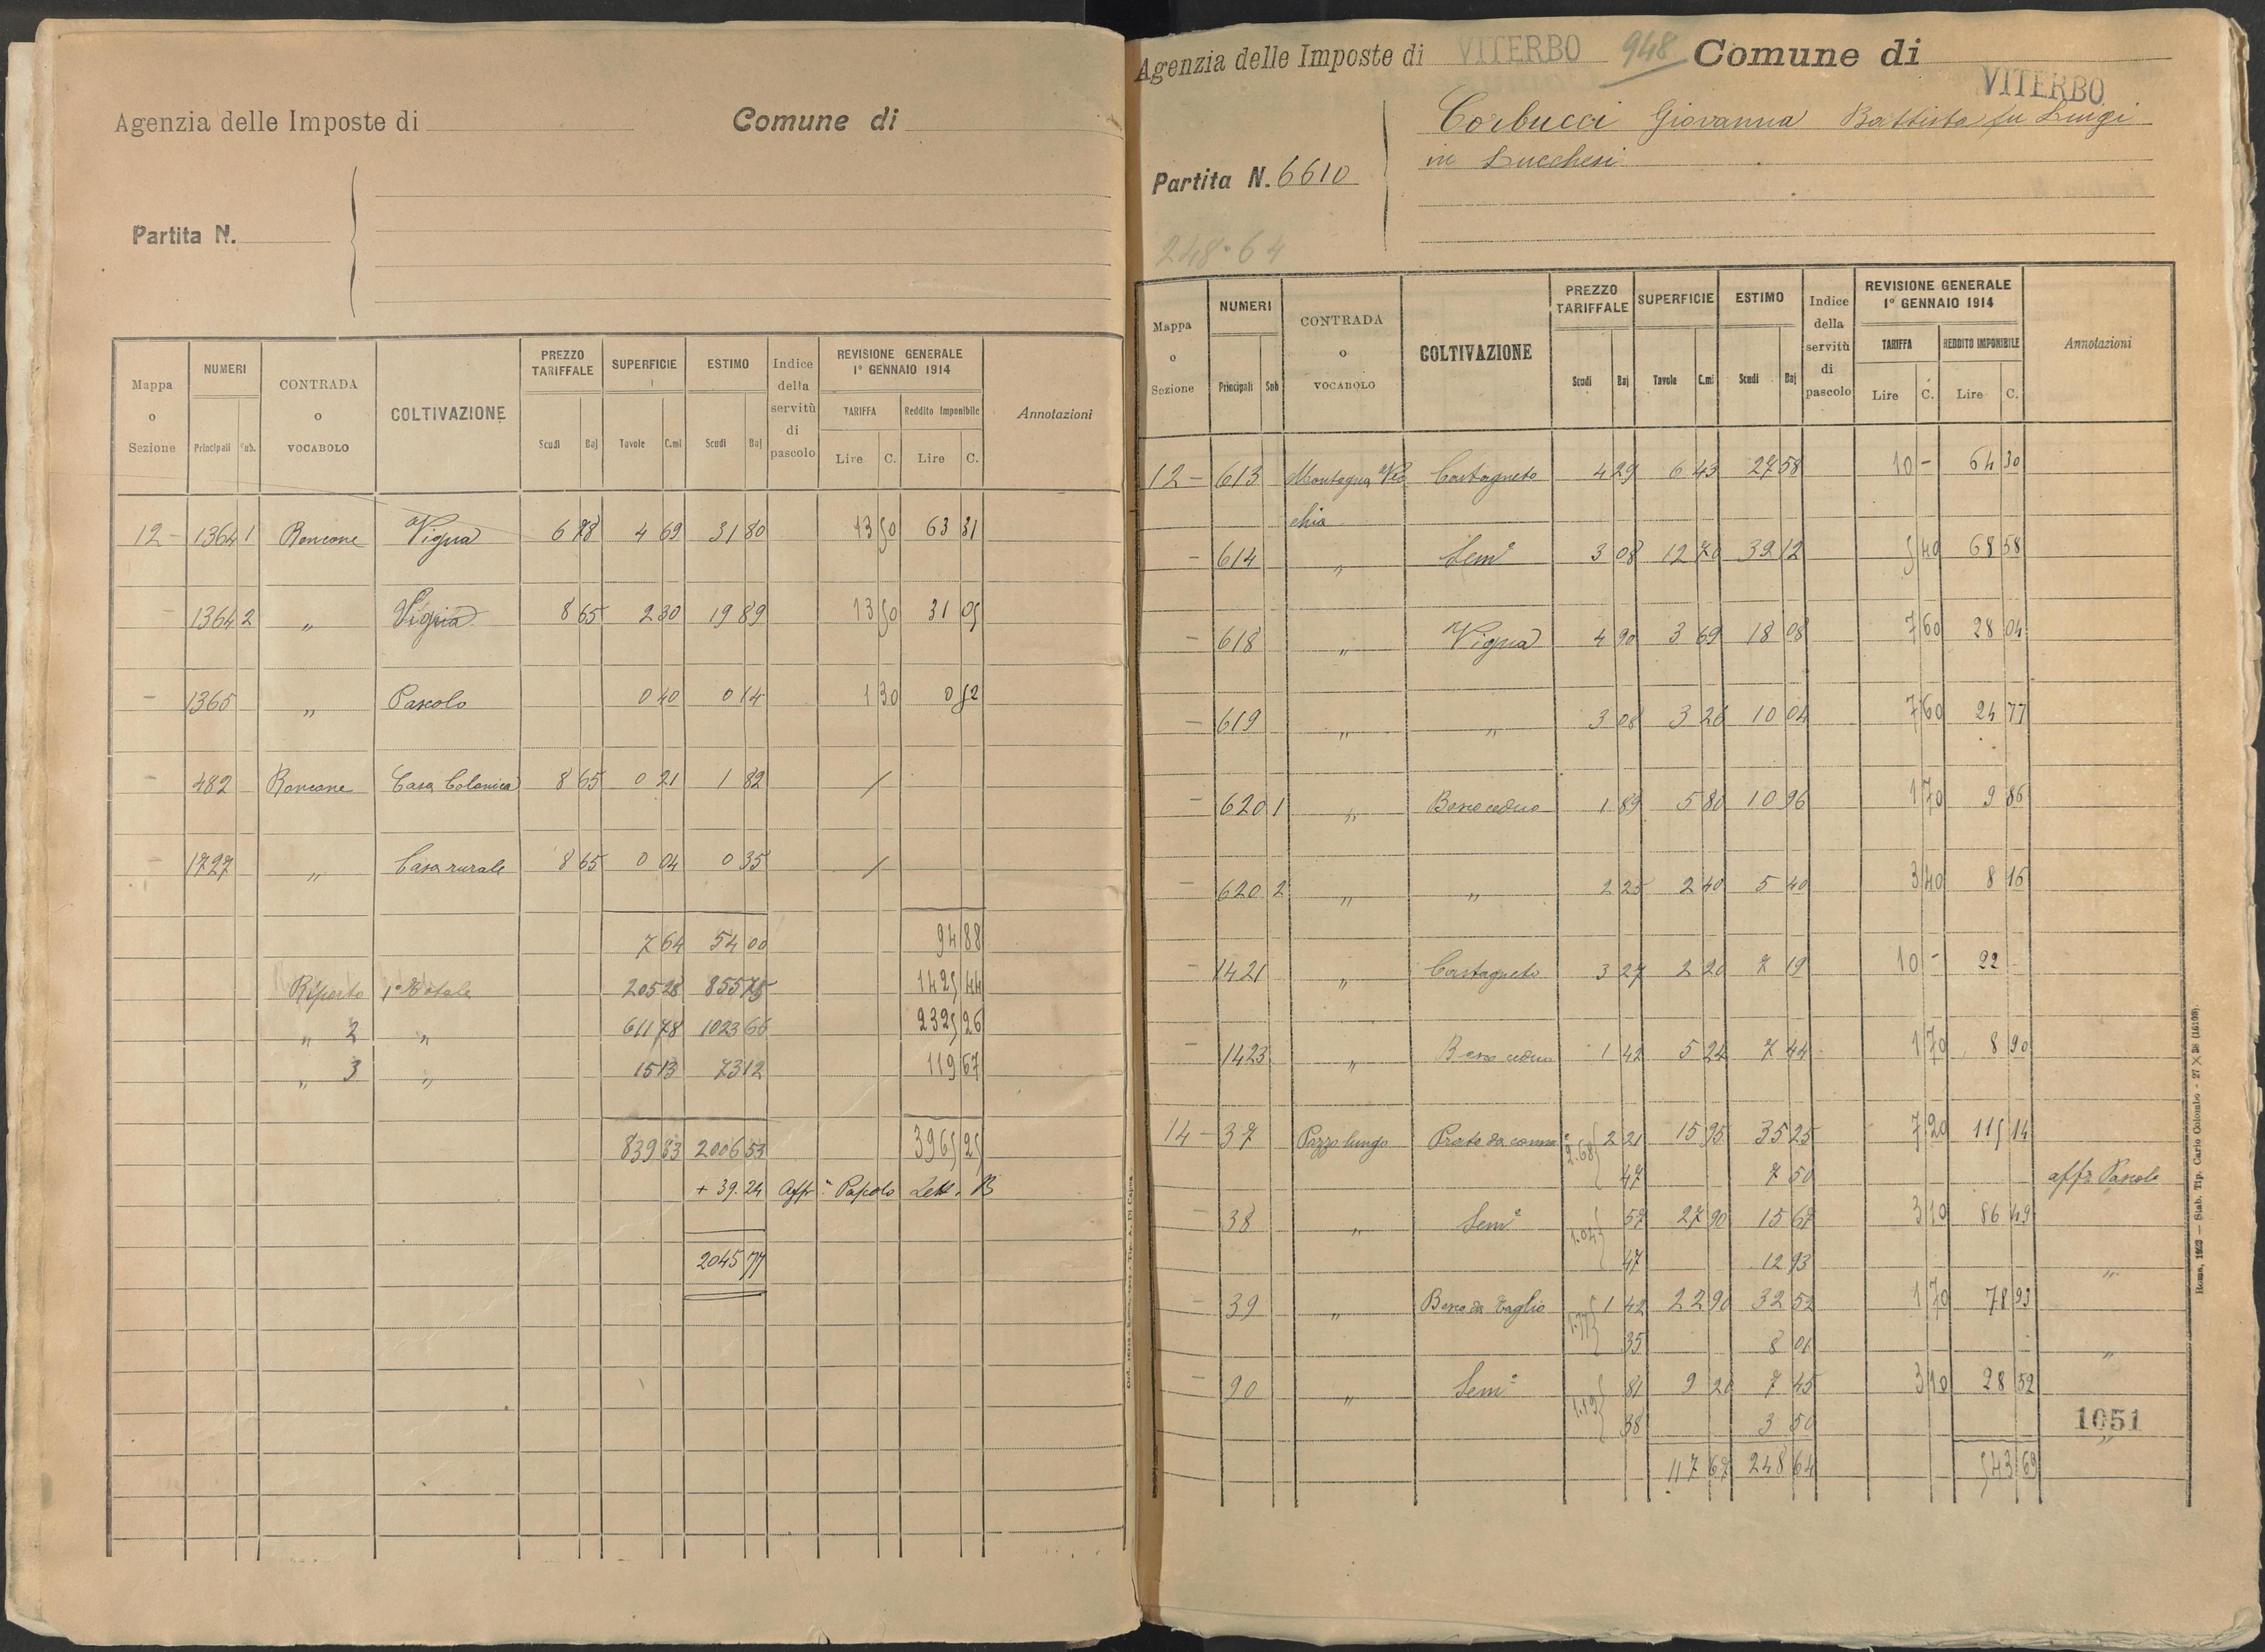 Agenzia delle Imposte di
Comune di
Partita N.
Mappa o Sezione | NUMERI Principali Sub. | CONTRADA o VOCABOLO | COLTIVAZIONE | PREZZO TARIFFALE Scudi Baj | SUPERFICIE Tavole C.mi | ESTIMO Scudi Baj | Indice della servitù di pascolo | REVISIONE GENERALE 1° GENNAIO 1914 TARIFFA Lire C. Reddito Imponibile Lire C. | Annotazioni
12 - 1364 1 Roncone Vigna 6 78 4 69 31 80 13 50 63 31
- 1364 2 " Vigna 8 65 2 30 19 89 13 50 31 05
- 1365 " Pascolo 0 40 0 14 1 30 0 52
- 482 Roncone Casa Colonica 8 65 0 21 1 82 /
- 1727 " Casa rurale 8 65 0 04 0 35 /
7 64 54 00 94 88
Riporto 1° Totale 205 28 855 75 1425 44
" 2 " 611 78 1023 66 2325 26
" 3 " 15 13 73 12 119 67
839 83 2006 53 3965 25
+ 39.24 Affr.º Pascolo Lett. B
2045 77
Agenzia delle Imposte di VITERBO 948 Comune di
VITERBO
Corbucci Giovanna Battista fu Luigi
in Lucchesi
Partita N. 6610
248.64
Mappa o Sezione | NUMERI Principali Sub | CONTRADA o VOCABOLO | COLTIVAZIONE | PREZZO TARIFFALE Scudi Baj | SUPERFICIE Tavole C.mi | ESTIMO Scudi Baj | Indice della servitù di pascolo | REVISIONE GENERALE 1° GENNAIO 1914 TARIFFA Lire C. REDDITO IMPONIBILE Lire C. | Annotazioni
12 - 613 Montagna Vec Castagneto 4 29 6 43 27 58 10 - 64 30
chia
- 614 " Sem.º 3 08 12 70 39 12 5 40 68 58
- 618 " Vigna 4 90 3 69 18 08 7 60 28 04
- 619 " " 3 08 3 26 10 04 7 60 24 77
- 620 1 " Bosco ceduo 1 89 5 80 10 96 1 70 9 86
- 620 2 " " 2 25 2 40 5 40 3 40 8 16
- 1421 " Castagneto 3 27 2 20 7 19 10 - 22 -
- 1423 " Bosco ceduo 1 42 5 24 7 44 1 70 8 90
14 - 37 Pozzo lungo 2.68 2 21 15 95 35 25 7 20 115 14
47 7 50 affr. Pascolo
- 38 " Sem.º 1.04 57 27 90 15 67 3 10 86 49
47 12 93 "
- 39 " Bosco da Taglio 1.77 1 42 22 90 32 52 1 70 78 93
35 8 01 "
- 90 " Sem.º 1.19 81 9 20 7 45 3 10 28 52
38 3 50 "
1051
117 67 248 64 543 69
Roma, 1923 — Stab. Tip. Carlo Colombo - 27 X 38 (16108)